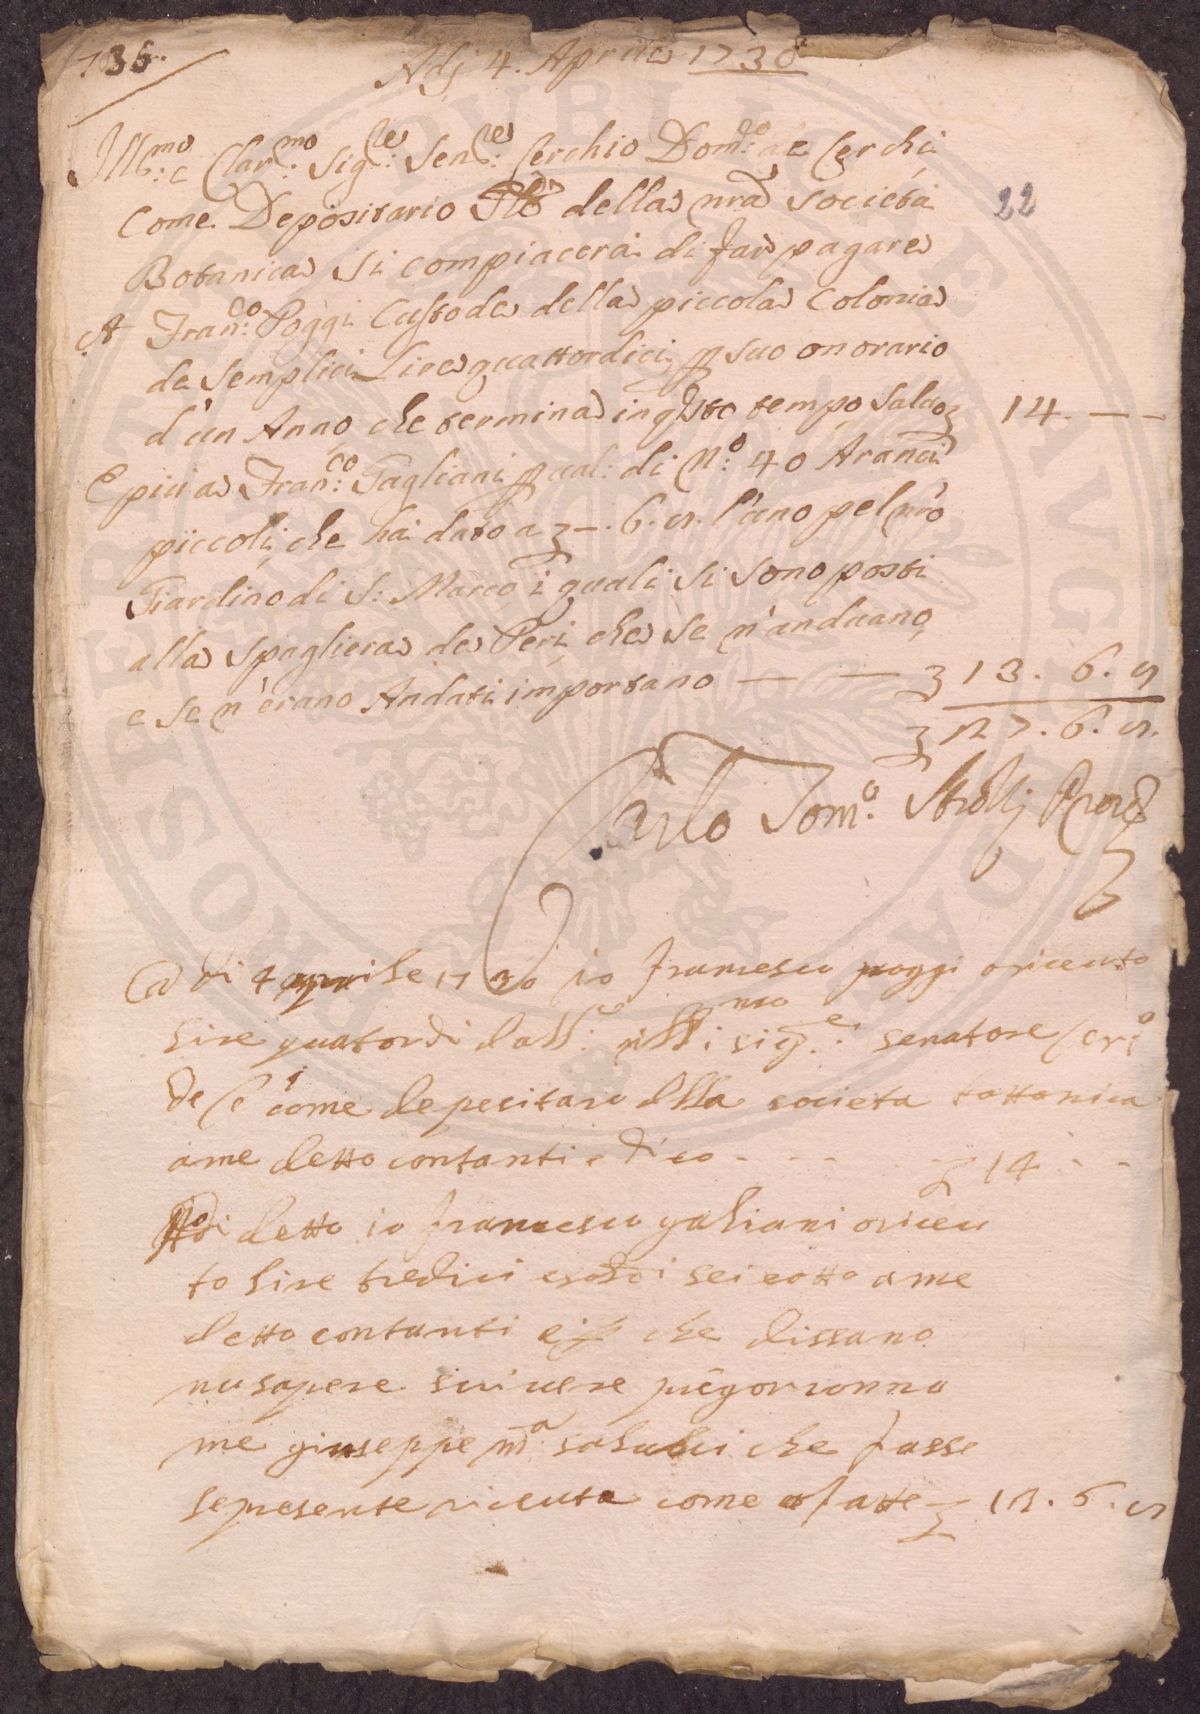 135.
Adj 4. Aprile 1730
Ill:mo e Clar:mo Sig:re Sen:re Cerchio Dom:co de Cerchi
22
Come Depositario della nra società
Botanica si compiacerà di far pagare
A Fran:co Poggi Custode della piccola Colonia
de Semplici Lire quattordici p suo onorario
d'un Anno che termina in qsto tempo, salvo 14. — —
E più a Fran:co Tagliani p val: di N:o 40 Aranci
piccoli, che ha dato a —. 6. 8. l'uno pel nro
Giardino di S: Marco i quali si sono posti
alla spagliera de Peri, che se n'andvano,
e se n'erano Andati importano — — 13. 6. 8
27. 6. 8.
Carlo Tom:o Strozzj
A di 4 aprile 1730 io francesco poggi o riceuto
lire quatordi dall: illmo sig:e senatore Cer:o
de Ce come depesitaro della societa bottanica
a me detto contanti dico - - - 14 - -
A di detto io francesco galiani o riceu
to lire tredici e soldi sei e otto a me
detto contanti e p che disse no
nu sapere scriuere pregor conno
me giuseppe m:a che fasse
se presente riceuta come a fatte 13. 6. 8